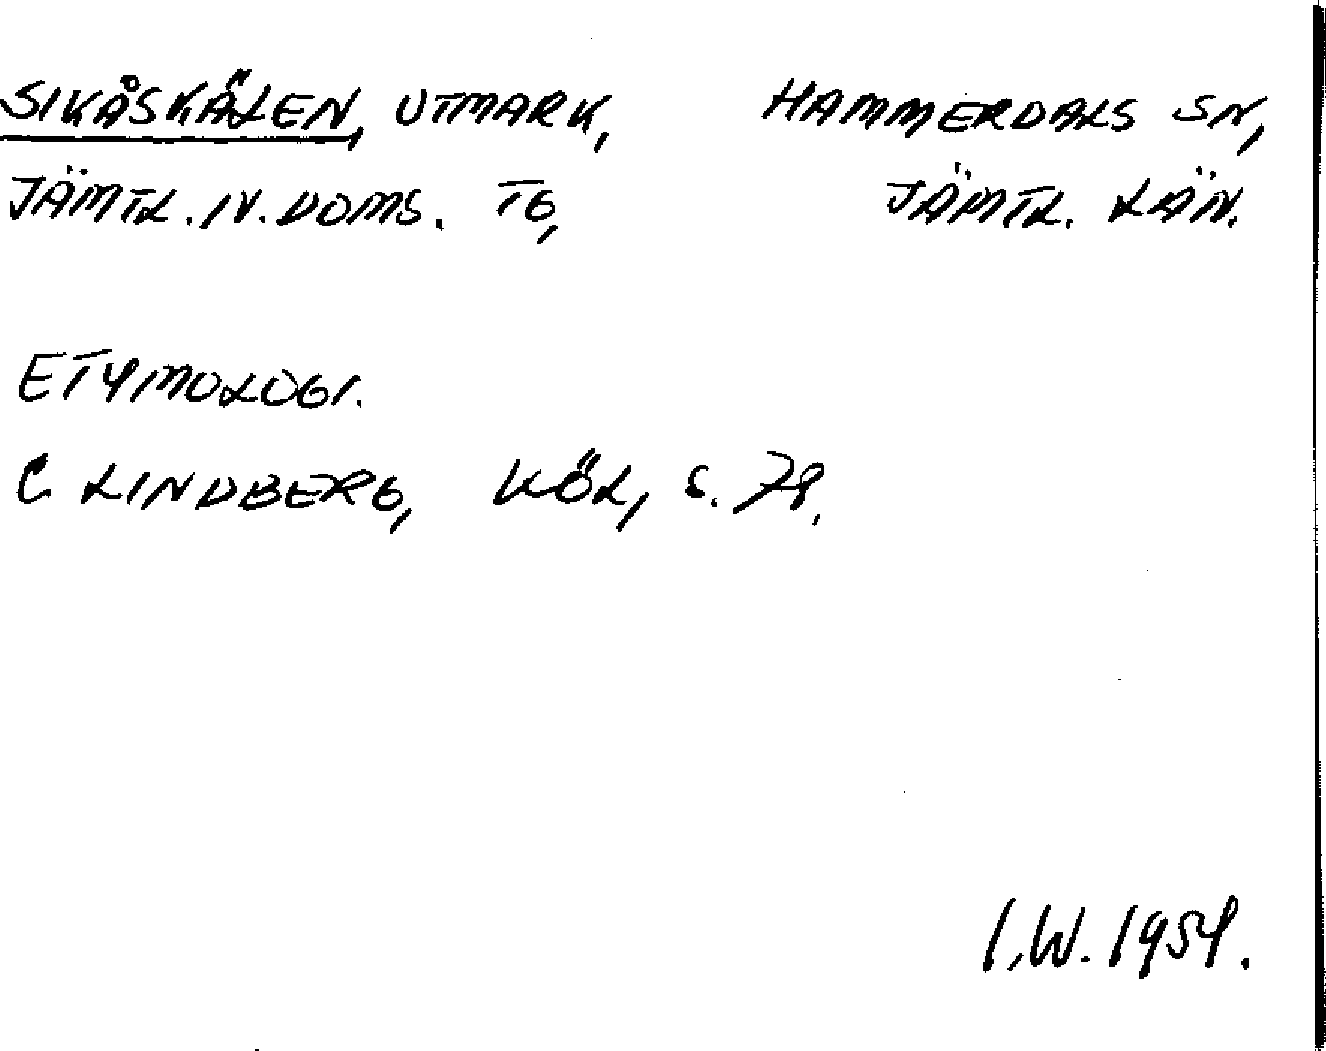 SIKÅSKÄLEN, UTMARK, HAMMERDALS SN,
JÄMTL. N. DOMS. TG, JÄMTL. LÄN.
ETYMOLOGI.
C LINDBERG, KÖL, S. 78.
I.W. 1954.